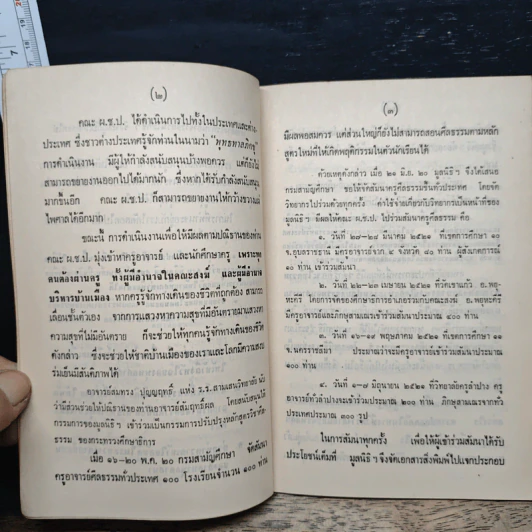 (๒)
คณะ ผ.ช.ป. ได้ดำเนินการไปทั้งในประเทศและต่าง-
ประเทศ ซึ่งชาวต่างประเทศรู้จักท่านในนามว่า "พุทธทาสภิกขุ"
การดำเนินงาน มีผู้ให้กำลังสนับสนุนบ้างพอควร แต่ก็ยังไม่
สามารถขยายงานออกไปได้มากนัก ซึ่งหากได้รับกำลังสนับสนุน
มากขึ้นอีก คณะ ผ.ช.ป. ก็สามารถขยายงานให้กว้างขวางแผ่
ไพศาลได้อีกมาก
ฉะนั้น การดำเนินงานเพื่อให้มีผลตามปณิธานของท่าน
คณะ ผ.ช.ป. มุ่งเข้าหาครูอาจารย์ และนักศึกษาครู เพราะทุก
คนต้องผ่านครู ทั้งผู้มีอำนาจในคณะสงฆ์ และผู้มีอำนาจ
บริหารบ้านเมือง หากครูรู้จักทางเดินของชีวิตที่ถูกต้อง สามารถ
เลื่อนชั้นตัวเอง จากการแสวงหาความสุขที่มีอันตรายมาแสวงหา
ความสุขที่ไม่มีอันตราย ก็จะช่วยให้ทุกคนรู้จักทางเดินของชีวิต
ดังกล่าว ซึ่งจะช่วยให้ชาติบ้านเมืองของเราและโลกมีความสงบ
ร่มเย็นมีสันติภาพได้
อาจารย์สมทรง ปุญญฤทธิ์ แห่ง ร.ร.สามเสนวิทยาลัย นับ
ว่ามีส่วนช่วยให้ปณิธานของท่านอาจารย์สัมฤทธิ์ผล โดยสนับสนุนให้
กรรมการของมูลนิธิฯ เข้าร่วมเป็นกรรมการปรับปรุงหลักสูตรวิชาศีล-
ธรรม ของกระทรวงศึกษาธิการ
เมื่อ ๑๖-๒๐ พ.ค. ๒๐ กรมสามัญศึกษา จัดสัมมนา
ครูอาจารย์ศีลธรรมทั่วประเทศ ๑๐๐ โรงเรียนจำนวน ๑๐๐ ท่าน
(๓)
มีผลพอสมควร แต่ส่วนใหญ่ก็ยังไม่สามารถสอนศีลธรรมตามหลัก
สูตรใหม่ที่ให้เกิดพฤติกรรมในตัวนักเรียนได้
ด้วยเหตุดังกล่าว เมื่อ ๒๑ มิ.ย. ๒๐ มูลนิธิฯ จึงได้เสนอ
กรมสามัญศึกษา ขอให้จัดสัมมนาครูศีลธรรมขึ้นทั่วประเทศ โดยจัด
วิทยากรไปร่วมด้วยทุกครั้ง ค่าใช้จ่ายเกี่ยวกับวิทยากรเป็นหน้าที่ของ
มูลนิธิฯ มีผลให้คณะ ผ.ช.ป. ไปร่วมสัมมนาครูศีลธรรม คือ
๑. วันที่ ๒๗-๒๙ มีนาคม ๒๕๒๑ ที่เขตการศึกษา ๑๐
จ.อุบลราชธานี มีครูอาจารย์จาก ๔ จังหวัด ๙๐ ท่าน ผู้สังเกตการณ์
๑๐ ท่าน เข้าร่วมสัมมนา
๒. วันที่ ๒๒-๒๓ เมษายน ๒๕๒๑ ที่วัดเขาแก้ว อ.พยุ-
หะคีรี โดยการจัดของศึกษาธิการอำเภอร่วมกับคณะสงฆ์ อ.พยุหะคีรี
มีครูอาจารย์และภิกษุสามเณรเข้าร่วมสัมมนาประมาณ ๔๐๐ ท่าน
๓. วันที่ ๑๖-๑๗ พฤษภาคม ๒๕๒๑ ที่เขตการศึกษา ๑๑
จ.นครราชสีมา ประมาณว่าจะมีครูอาจารย์เข้าร่วมสัมมนาประมาณ
๑๐๐ ท่าน
๔. วันที่ ๑-๗ มิถุนายน ๒๕๒๑ ที่วิทยาลัยครูลำปาง ครู
อาจารย์ทั่วลำปางจะเข้าร่วมประมาณ ๒๐๐ ท่าน ภิกษุสามเณรจากทั่ว
ประเทศประมาณ ๓๐๐ รูป
ในการสัมมนาทุกครั้ง เพื่อให้ผู้เข้าร่วมสัมมนาได้รับ
ประโยชน์เต็มที่ มูลนิธิฯ จึงจัดเอกสารสิ่งพิมพ์ไปแจกประกอบ